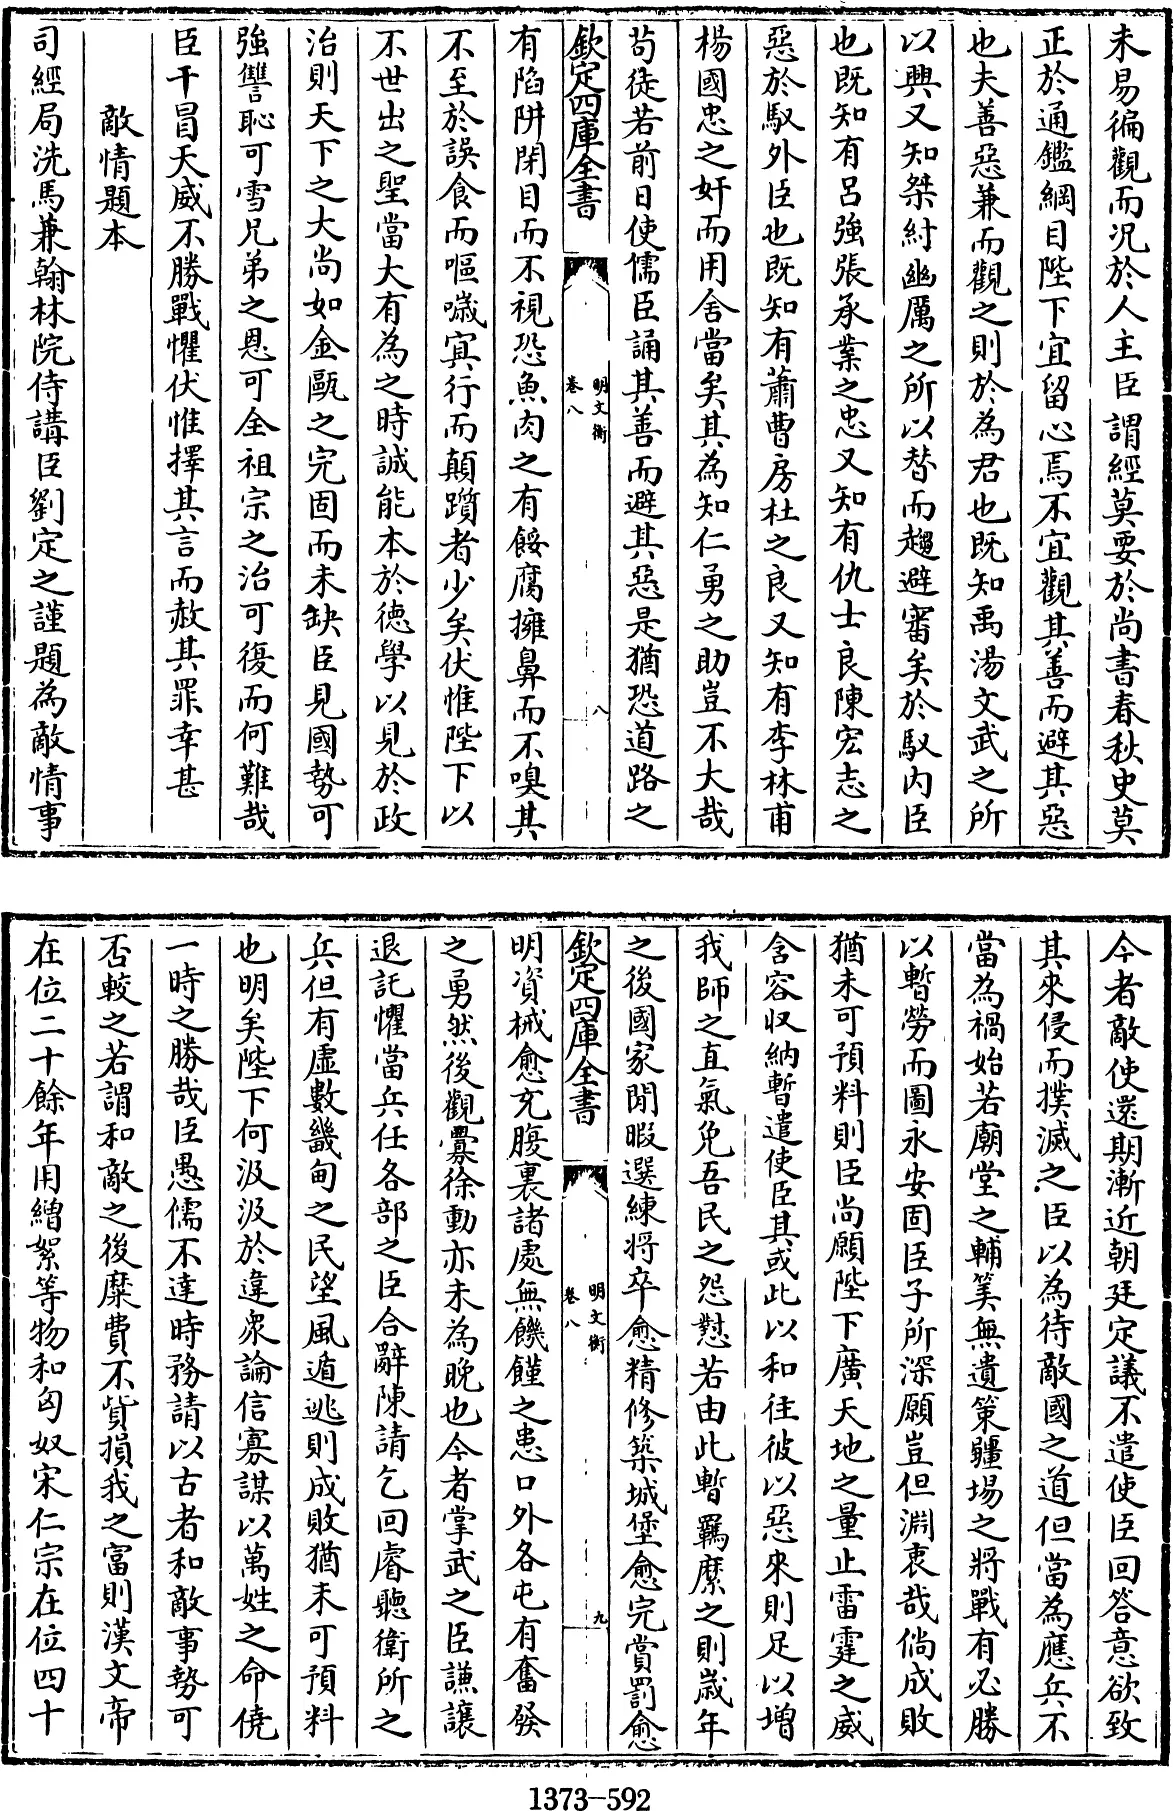 未易徧觀而况於人主臣謂經莫要於尚書春秋史莫
正於通鑑綱目陛下宜留心焉不宜觀其善而避其惡
也夫善惡兼而觀之則於為君也既知禹湯文武之所
以興又知桀紂幽厲之所以替而趨避審矣於馭内臣
也既知有吕強張承業之忠又知有仇士良陳宏志之
惡於馭外臣也既知有蕭曹房杜之良又知有李林甫
楊國忠之奸而用舍當矣其為知仁勇之助豈不大哉
苟徒若前日使儒臣誦其善而避其惡是猶恐道路之
欽定四庫全書
明文衡
卷八
八
有陷阱閉目而不視恐魚肉之有餒腐擁鼻而不嗅其
不至於誤食而嘔噦㝠行而顛躓者少矣伏惟陛下以
不世出之聖當大有為之時誠能本於徳學以見於政
治則天下之大尚如金甌之完固而未缺臣見國勢可
強讐恥可雪兄弟之恩可全祖宗之治可復而何難哉
臣干冒天威不勝戰懼伏惟擇其言而赦其罪幸甚
敵情題本
司經局洗馬兼翰林院侍講臣劉定之謹題為敵情事
今者敵使還期漸近朝廷定議不遣使臣回答意欲致
其來侵而撲滅之臣以為待敵國之道但當為應兵不
當為禍始若廟堂之輔筭無遺策疆埸之將戰有必勝
以暫勞而圖永安固臣子所深願豈但淵衷哉倘成敗
猶未可預料則臣尚願陛下廣天地之量止雷霆之威
含容収納暫遣使臣其或此以和往彼以惡來則足以增
我師之直氣免吾民之怨懟若由此暫羈縻之則歳年
之後國家閒暇選練將卒愈精修築城堡愈完賞罰愈
欽定四庫全書
明文衡
卷八
九
明資械愈充腹裏諸處無饑饉之患口外各屯有奮發
之勇然後觀釁徐動亦未為晚也今者掌武之臣謙讓
退託懼當兵任各部之臣合辭陳請乞回睿聽衛所之
兵但有虚數畿甸之民望風遁逃則成敗猶未可預料
也明矣陛下何汲汲於違衆論信寡謀以萬姓之命僥
一時之勝哉臣愚儒不達時務請以古者和敵事勢可
否較之若謂和敵之後糜費不貲損我之富則漢文帝
在位二十餘年用繒絮等物和匈奴宋仁宗在位四十
1373-592